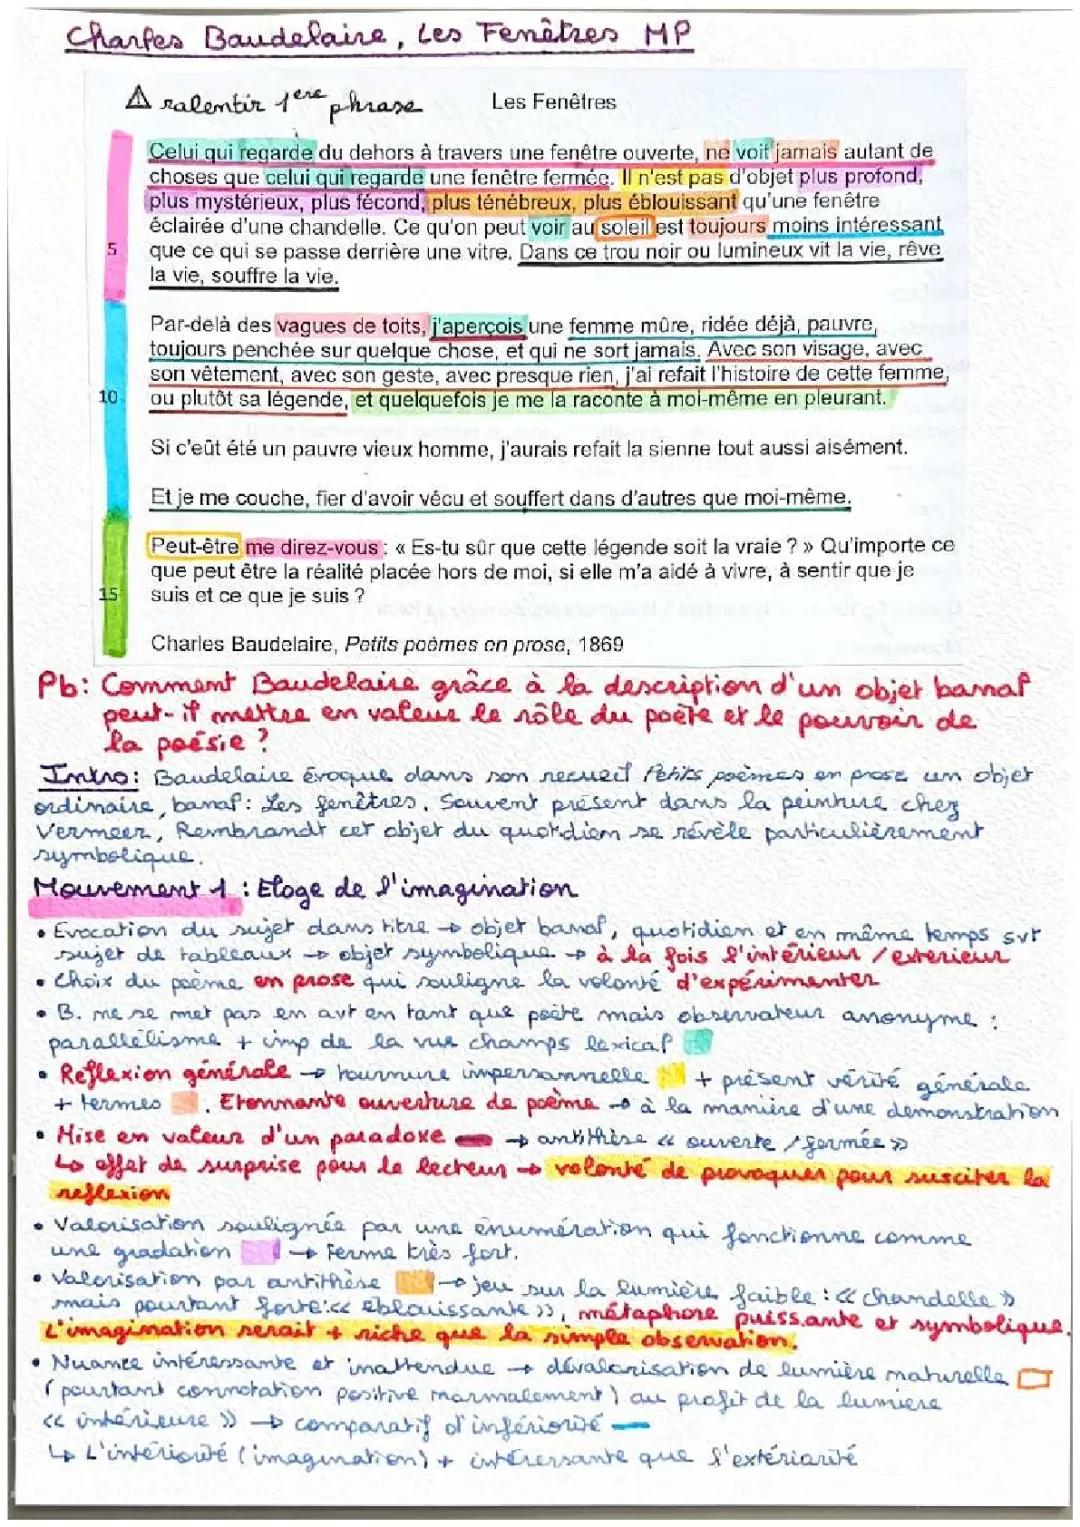 Charles Baudelaire, Les Fenêtres MP
⚠ ralentir 1ere phrase
Les Fenêtres
Celui qui regarde du dehors à travers une fenêtre ouverte, ne voit jamais autant de
choses que celui qui regarde une fenêtre fermée. Il n'est pas d'objet plus profond,
plus mystérieux, plus fécond, plus ténébreux, plus éblouissant qu'une fenêtre
éclairée d'une chandelle. Ce qu'on peut voir au soleil est toujours moins intéressant
5 que ce qui se passe derrière une vitre. Dans ce trou noir ou lumineux vit la vie, rêve
la vie, souffre la vie.
Par-delà des vagues de toits, j'aperçois une femme mûre, ridée déjà, pauvre,
toujours penchée sur quelque chose, et qui ne sort jamais. Avec son visage, avec
son vêtement, avec son geste, avec presque rien, j'ai refait l'histoire de cette femme,
10 ou plutôt sa légende, et quelquefois je me la raconte à moi-même en pleurant.
Si c'eût été un pauvre vieux homme, j'aurais refait la sienne tout aussi aisément.
Et je me couche, fier d'avoir vécu et souffert dans d'autres que moi-même.
Peut-être me direz-vous : « Es-tu sûr que cette légende soit la vraie ? » Qu'importe ce
que peut être la réalité placée hors de moi, si elle m'a aidé à vivre, à sentir que je
15 suis et ce que je suis ?
Charles Baudelaire, Petits poèmes en prose, 1869
Pb: Comment Baudelaire grâce à la description d'un objet banal
peut-il mettre en valeur le rôle du poète et le pouvoir de
la poésie ?
Intro: Baudelaire évoque dans son recueil Petits poèmes en prose un objet
ordinaire, banal: Les fenêtres. Souvent présent dans la peinture chez
Vermeer, Rembrandt cet objet du quotidien se révèle particulièrement
symbolique.
Mouvement 1 : Eloge de l'imagination
• Evocation du sujet dans titre → objet banal, quotidien et en même temps svt
sujet de tableaux → objet symbolique → à la fois l'intérieur / exterieur
• Choix du poème en prose qui souligne la volonté d'expérimenter
• B. ne se met pas en avt en tant que poète mais observateur anonyme :
parallélisme + imp de la vue champs lexical
• Reflexion générale → tournure impersonnelle + présent vérité générale
+ termes . Etonnante ouverture de poème → à la manière d'une démonstration
• Mise en valeur d'un paradoxe → antithèse « ouverte / fermée »
↳ effet de surprise pour le lecteur → volonté de provoquer pour susciter la
reflexion
• Valorisation soulignée par une énumération qui fonctionne comme
une gradation → Terme très fort.
• Valorisation par antithèse → jeu sur la lumière faible : « chandelle »
mais pourtant forte: « eblouissante », métaphore puissante et symbolique.
L'imagination serait + riche que la simple observation.
• Nuance intéressante et inattendue → dévalorisation de lumière naturelle
(pourtant connotation positive normalement) au profit de la lumiere
« intérieure » → comparatif d'infériorité
↳ L'intériorité (imagination) + intéressante que l'extériorité